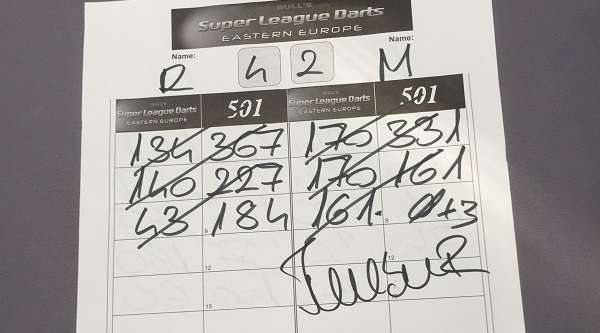 BULL'S
Super League Darts
EASTERN EUROPE
Name: Name:
R 4 2 M
BULL'S
Super League Darts
EASTERN EUROPE
501
BULL'S
Super League Darts
EASTERN EUROPE
501
134 367 170 331
140 227 170 161
43 184 9 161 0+3
12 12
15